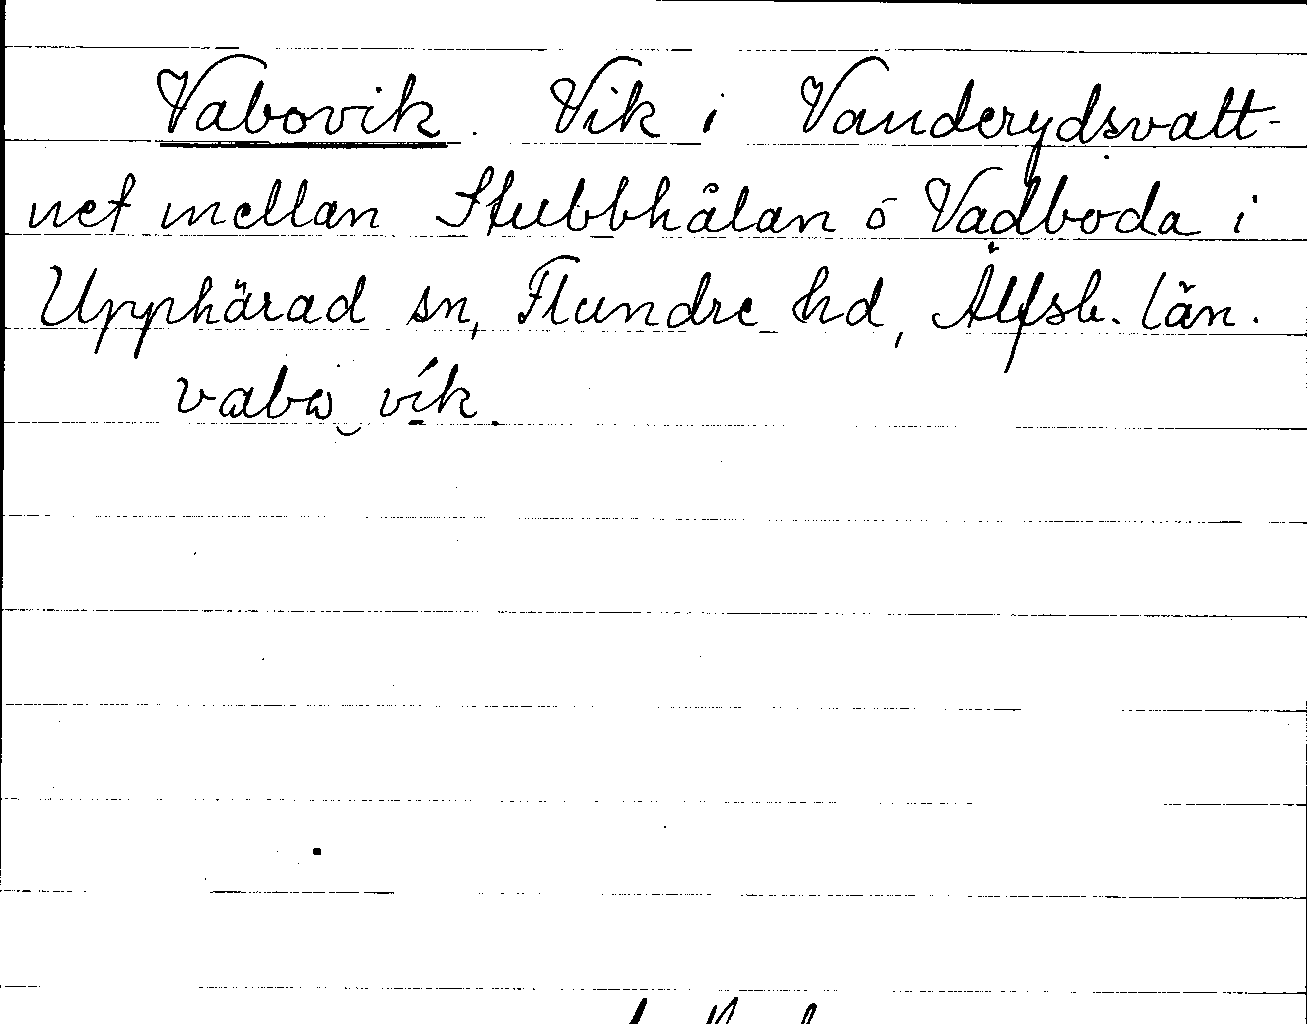 Vabovik. Vik i Vanderydsvatt-
net mellan Stubbhålan o Vadboda i
Upphärad sn, Flundre hd, Älfsb. län.
vabω‿vík.